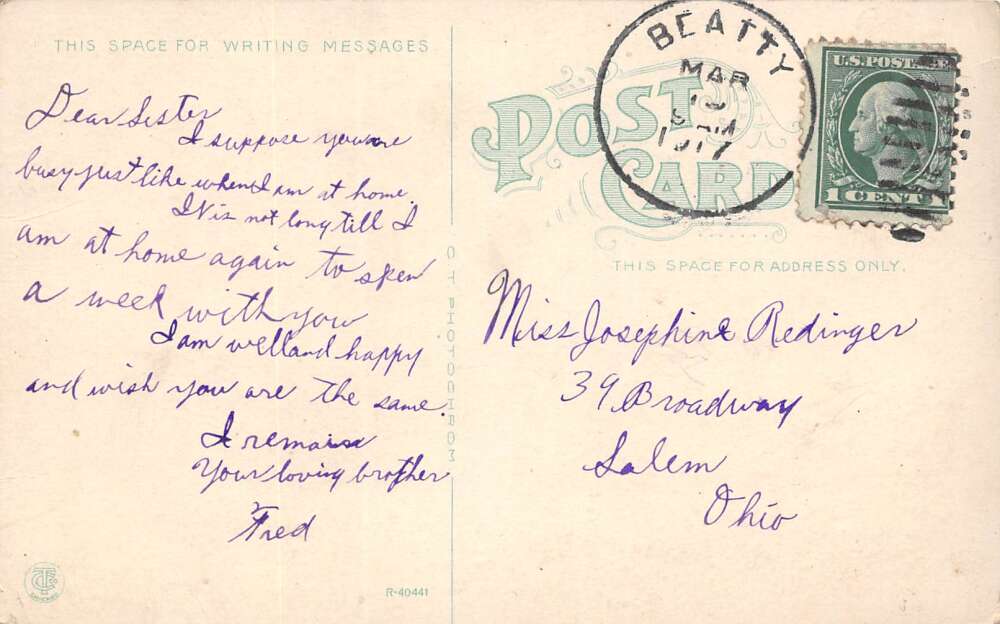 THIS SPACE FOR WRITING MESSAGES
Dear Sister
I suppose you are
busy just like when I am at home.
It is not long till I
am at home again to spen
a week with you
I am well and happy
and wish you are the same.
I remain
Your loving brother
Fred
R-40441
BEATTY
MAR
1917
U.S. POSTAGE
1 CENT
POST
CARD
THIS SPACE FOR ADDRESS ONLY.
Miss Josephine Redinger
39 Broadway
Salem
Ohio